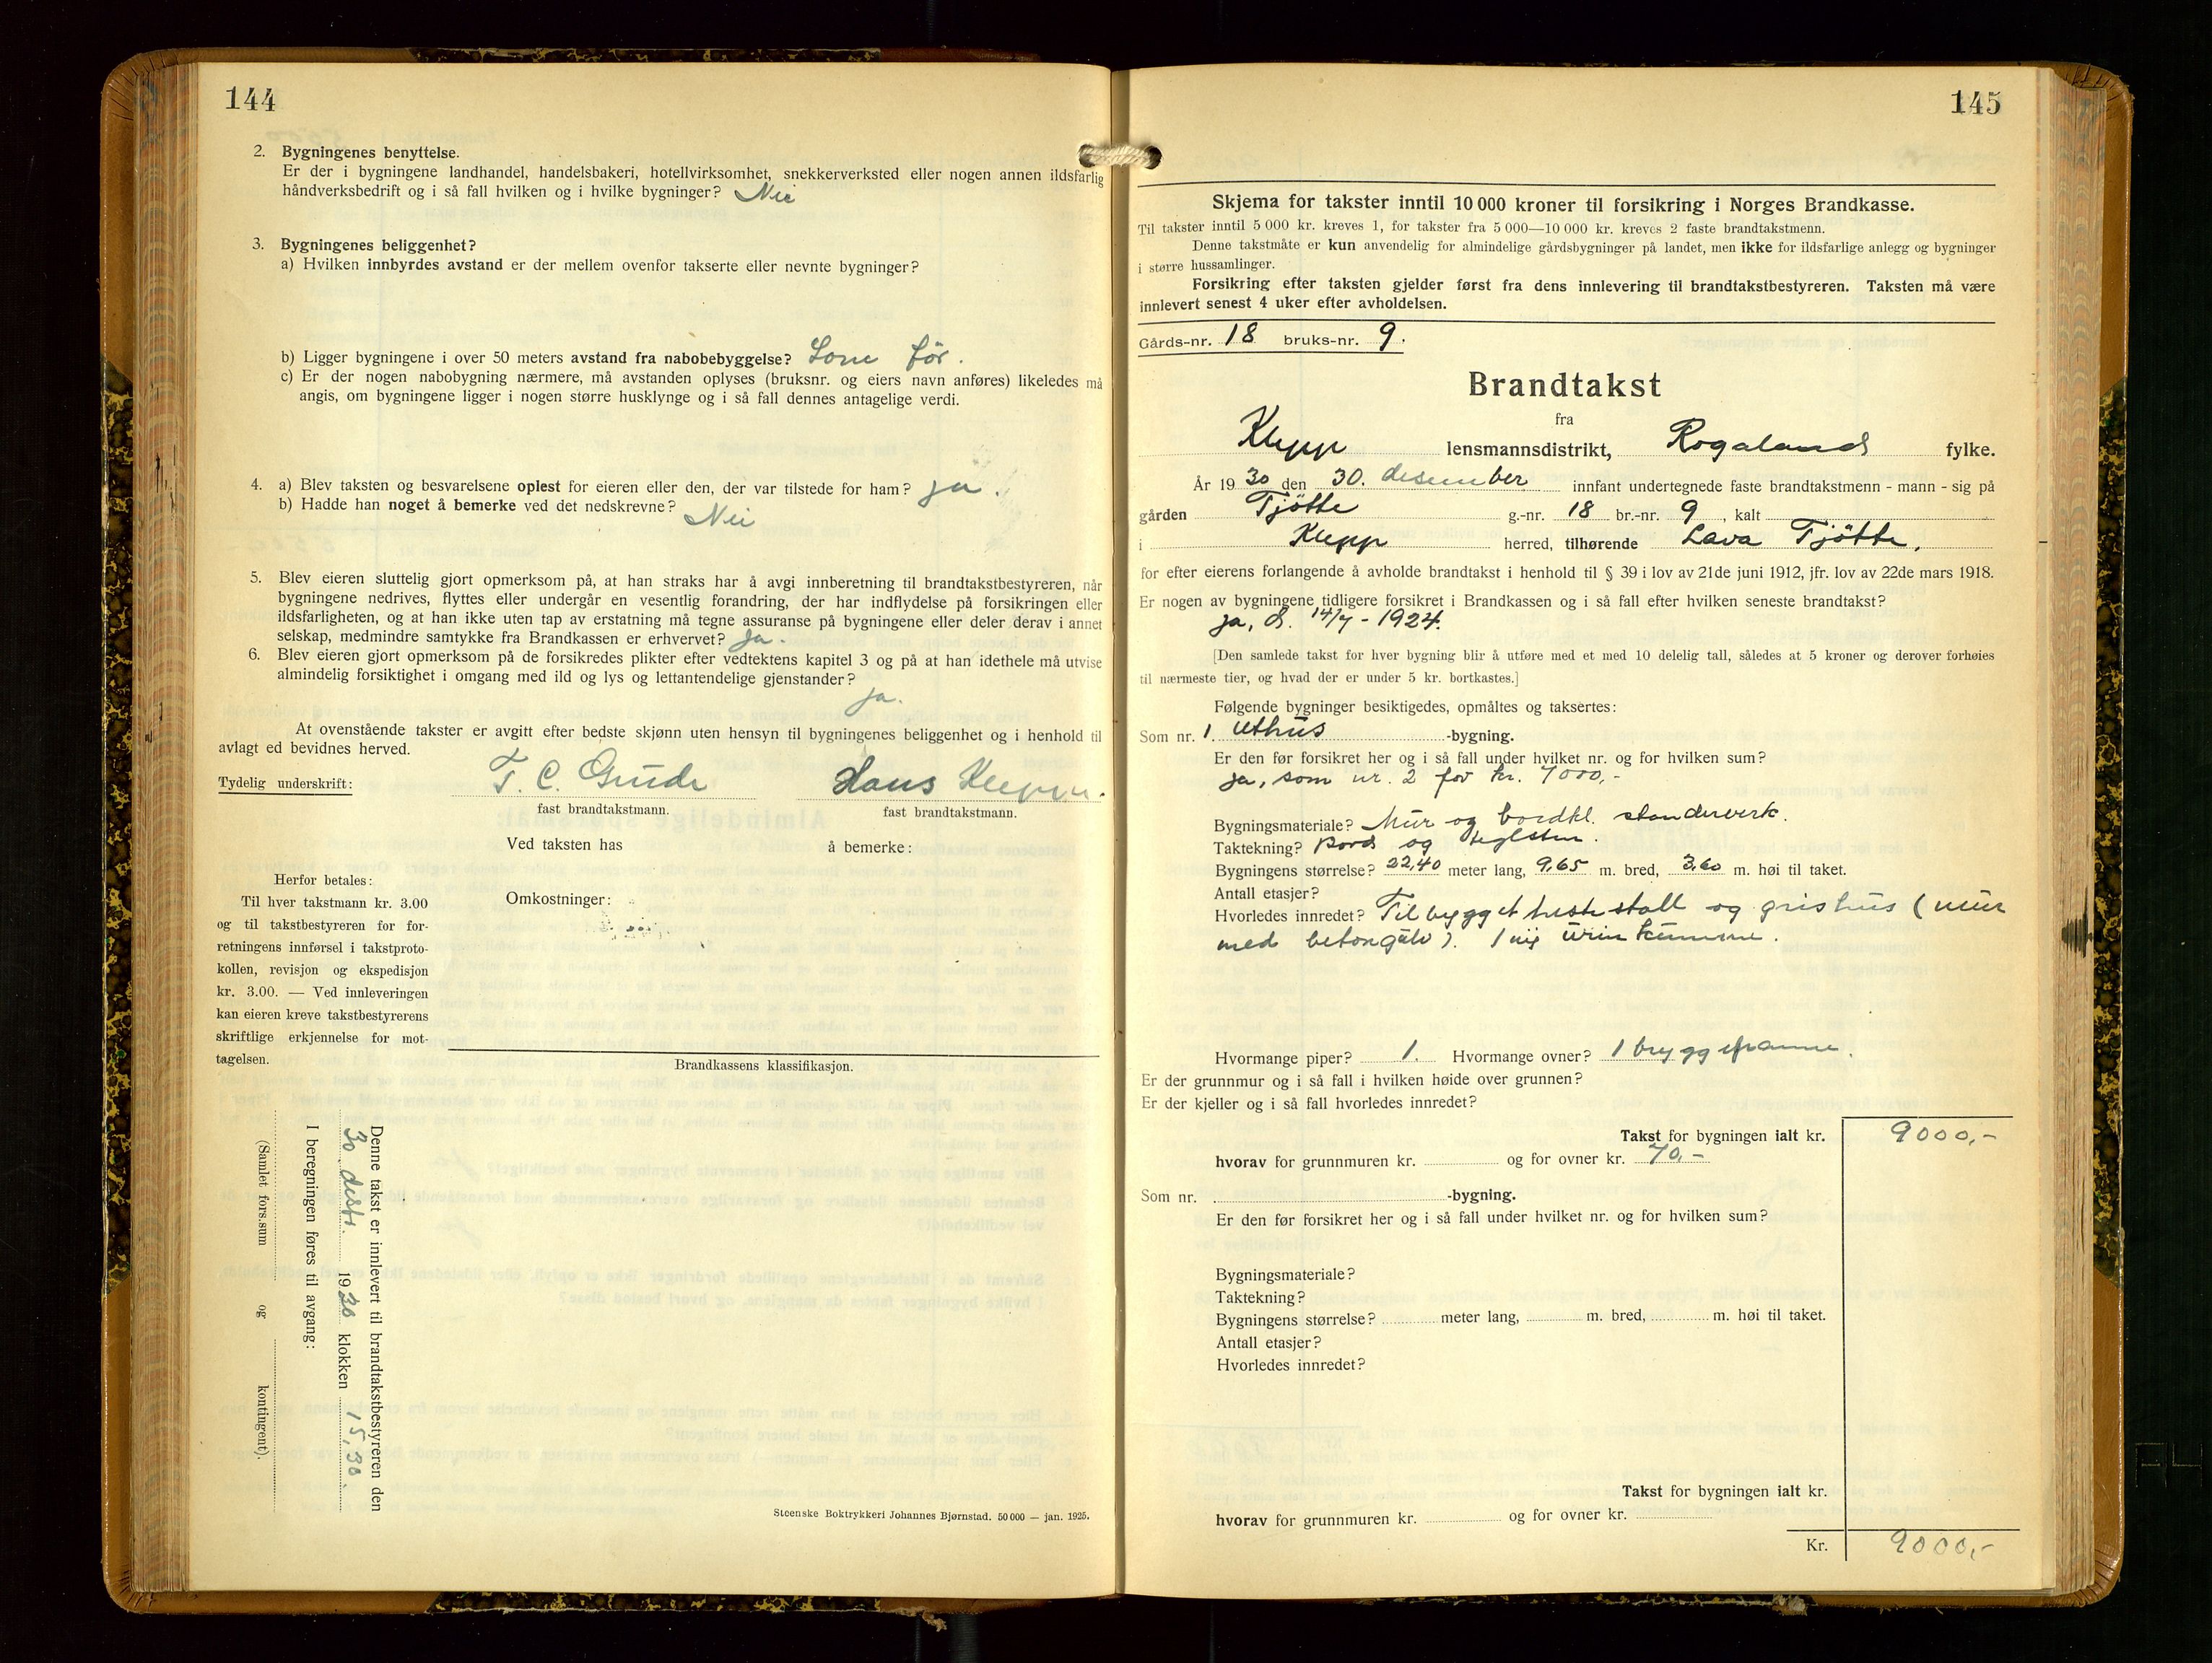 144
2. Bygningenes benyttelse.
Er der i bygningene landhandel, handelsbakeri, hotellvirksomhet, snekkerverksted eller nogen annen ildsfarlig
håndverksbedrift og i så fall hvilken og i hvilke bygninger? Nei
3. Bygningenes beliggenhet?
a) Hvilken innbyrdes avstand er der mellem ovenfor takserte eller nevnte bygninger?
b) Ligger bygningene i over 50 meters avstand fra nabobebyggelse? Som før.
c) Er der nogen nabobygning nærmere, må avstanden oplyses (bruksnr. og eiers navn anføres) likeledes må
angis, om bygningene ligger i nogen større husklynge og i så fall dennes antagelige verdi.
4. a) Blev taksten og besvarelsene oplest for eieren eller den, der var tilstede for ham? ja.
b) Hadde han noget å bemerke ved det nedskrevne? Nei
5. Blev eieren sluttelig gjort opmerksom på, at han straks har å avgi innberetning til brandtakstbestyreren, når
bygningene nedrives, flyttes eller undergår en vesentlig forandring, der har indflydelse på forsikringen eller
ildsfarligheten, og at han ikke uten tap av erstatning må tegne assuranse på bygningene eller deler derav i annet
selskap, medmindre samtykke fra Brandkassen er erhvervet? ja.
6. Blev eieren gjort opmerksom på de forsikredes plikter efter vedtektens kapitel 3 og på at han idethele må utvise
almindelig forsiktighet i omgang med ild og lys og lettantendelige gjenstander?
ja.
At ovenstående takster er avgitt efter bedste skjønn uten hensyn til bygningenes beliggenhet og i henhold til
avlagt ed bevidnes herved.
Tydelig underskrift: T. C. Grude Hans Kleppe.
fast brandtakstmann. fast brandtakstmann.
Ved taksten has å bemerke:
Omkostninger:
Herfor betales:
Til hver takstmann kr. 3.00
og til takstbestyreren for for-
retningens innførsel i takstproto-
kollen, revisjon og ekspedisjon
kr. 3.00. — Ved innleveringen
kan eieren kreve takstbestyrerens
skriftlige erkjennelse for mot-
tagelsen.
Brandkassens klassifikasjon.
Denne takst er innlevert til brandtakstbestyreren den
30 desbr. 1930 klokken 15,30.
I beregningen føres til avgang:
(Samlet fors.sum og kontingent).
Steenske Boktrykkeri Johannes Bjørnstad. 50 000 — jan. 1925.
145
Skjema for takster inntil 10 000 kroner til forsikring i Norges Brandkasse.
Til takster inntil 5 000 kr. kreves 1, for takster fra 5 000—10 000 kr. kreves 2 faste brandtakstmenn.
Denne takstmåte er kun anvendelig for almindelige gårdsbygninger på landet, men ikke for ildsfarlige anlegg og bygninger
i større hussamlinger.
Forsikring efter taksten gjelder først fra dens innlevering til brandtakstbestyreren. Taksten må være
innlevert senest 4 uker efter avholdelsen.
Gårds-nr. 18 bruks-nr. 9.
Brandtakst
fra
Klepp lensmannsdistrikt, Rogalands fylke.
År 1930 den 30. desember innfant undertegnede faste brandtakstmenn - mann - sig på
gården Tjötte g.-nr. 18 br.-nr. 9, kalt
i Klepp herred, tilhørende Lava Tjötte.
for efter eierens forlangende å avholde brandtakst i henhold til § 39 i lov av 21de juni 1912, jfr. lov av 22de mars 1918.
Er nogen av bygningene tidligere forsikret i Brandkassen og i så fall efter hvilken seneste brandtakst?
ja, d. 14/7 - 1924.
[Den samlede takst for hver bygning blir å utføre med et med 10 delelig tall, således at 5 kroner og derover forhøies
til nærmeste tier, og hvad der er under 5 kr. bortkastes.]
Følgende bygninger besiktigedes, opmåltes og taksertes:
Som nr. 1. Uthus -bygning.
Er den før forsikret her og i så fall under hvilket nr. og for hvilken sum?
ja, som nr. 2 for kr. 7000,-
Bygningsmateriale? Mur og bordkl. standerverk.
Taktekning? Bord og teglsten.
Bygningens størrelse? 22,40 meter lang, 9,65 m. bred, 3,60 m. høi til taket.
Antall etasjer?
Hvorledes innredet? Tilbygget hestestall og grishus (mur
med betongulv). 1 ny urinkumme.
Hvormange piper? 1. Hvormange ovner? 1 bryggepanne.
Er der grunnmur og i så fall i hvilken høide over grunnen?
Er der kjeller og i så fall hvorledes innredet?
Takst for bygningen ialt kr. 9000,-
hvorav for grunnmuren kr. og for ovner kr. 70,-
Som nr. -bygning.
Er den før forsikret her og i så fall under hvilket nr. og for hvilken sum?
Bygningsmateriale?
Taktekning?
Bygningens størrelse? meter lang, m. bred, m. høi til taket.
Antall etasjer?
Hvorledes innredet?
Takst for bygningen ialt kr.
hvorav for grunnmuren kr. og for ovner kr.
Kr. 9000,-